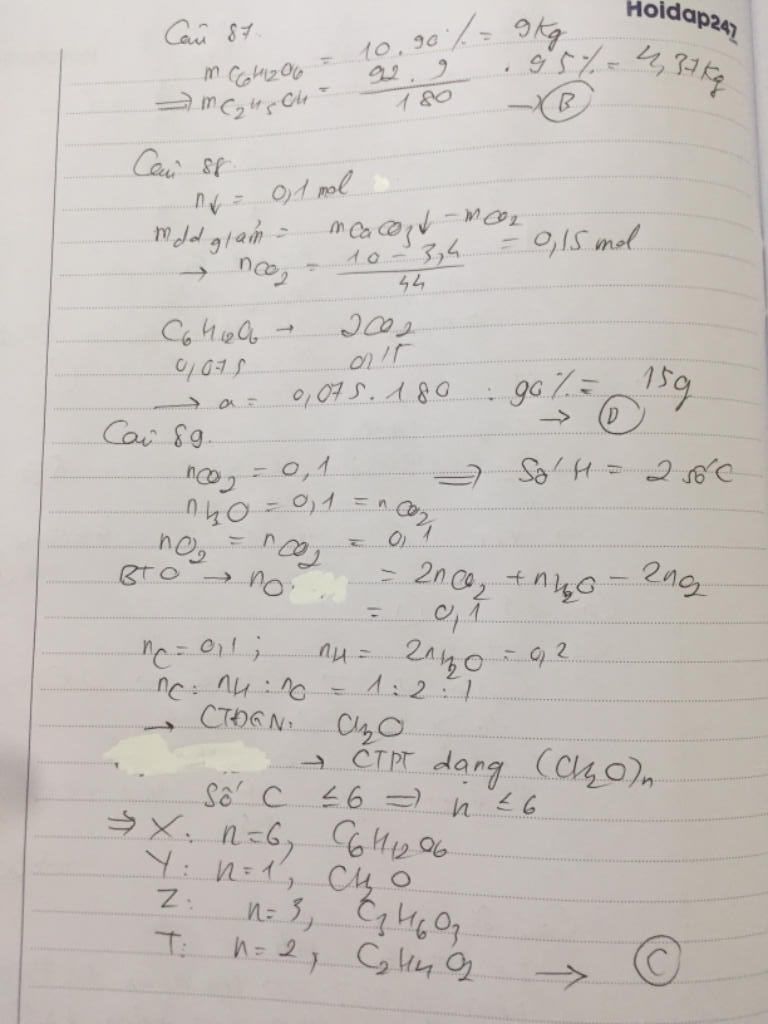 Hoidap247
Câu 87.
mC6H12O6 = 10.90% = 9kg
=> mC2H5OH = 92.9/180 . 95% = 4,37kg
→ B
Câu 88.
n↓ = 0,1 mol
mdd giảm = mCaCO3↓ - mCO2
→ nCO2 = (10 - 3,4)/44 = 0,15 mol
C6H12O6 → 2CO2
0,075 0,15
→ a = 0,075.180 : 90% = 15g
→ D
Câu 89.
nCO2 = 0,1 => Số H = 2 số C
nH2O = 0,1 = nCO2
nO2 = nCO2 = 0,1
BTO → nO = 2nCO2 + nH2O - 2nO2
= 0,1
nC = 0,1; nH = 2nH2O = 0,2
nC : nH : nO = 1 : 2 : 1
→ CTĐGN: CH2O
→ CTPT dạng (CH2O)n
Số C ≤6 => n ≤6
=> X: n=6, C6H12O6
Y: n=1, CH2O
Z: n=3, C3H6O3
T: n=2, C2H4O2 → C